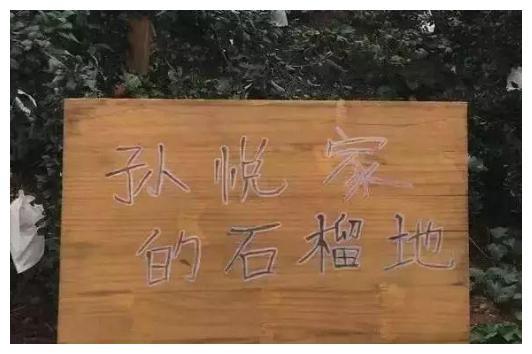 孙悦家
的石榴地